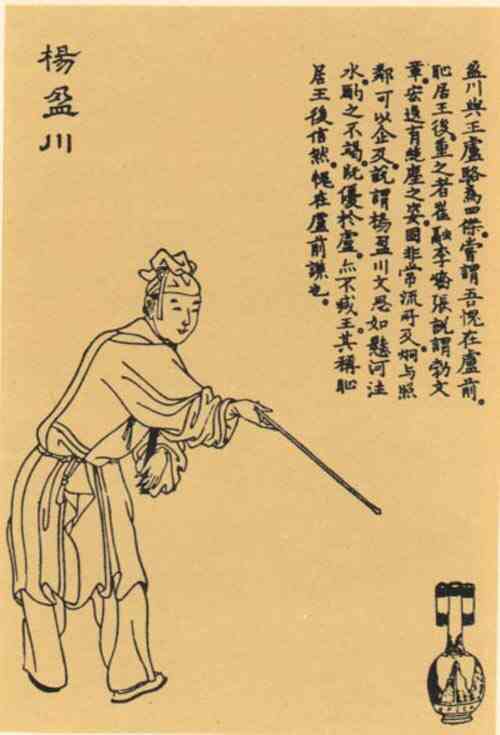 楊盈川
盈川與王盧駱為四傑。嘗謂吾愧在盧前。
恥居王後。重之者崔融李嶠張說。謂勃文
章宏逸。有絕塵之姿。固非常流所及。炯与照
鄰可以企及。說謂楊盈川文思如懸河注
水。酌之不竭。既優於盧。亦不减王。其稱恥
居王後信然。愧在盧前謙也。